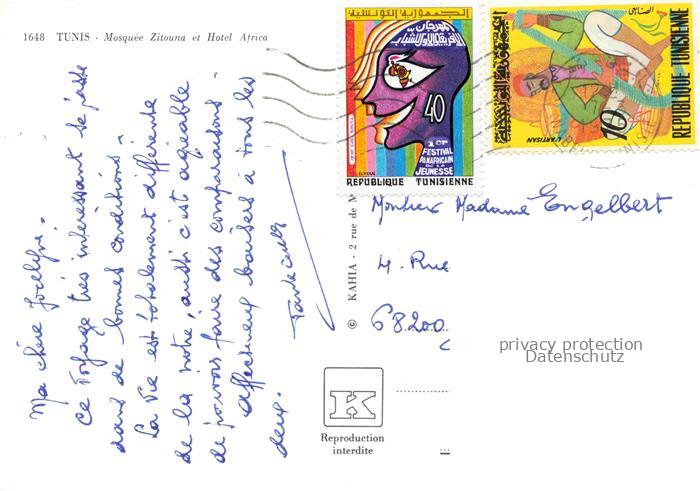 1648 TUNIS - Mosquée Zitouna et Hotel Africa
Ma chère Jocelyne.
Ce voyage très intéressant se passe
dans de bonnes conditions.
La vie est totalement différente
de la nôtre, aussi c'est agréable
de pouvoir faire des comparaisons.
Affectueux baisers à tous les
deux.
© KAHIA - 2 rue de M
K
Reproduction
interdite
الجمهورية التونسية
40
1er
FESTIVAL
PANAFRICAIN
DE LA
JEUNESSE
REPUBLIQUE TUNISIENNE
10
L'ARTISAN
REPUBLIQUE TUNISIENNE
Monsieur Madame Engelbert
4. Rue
68200
privacy protection
Datenschutz